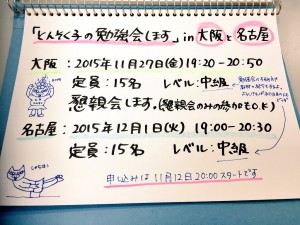 「とんそく子の勉強会します」in 大阪と名古屋
大阪：2015年11月27日(金)19:20-20:50
定員：15名 レベル:中級
懇親会します。(懇親会のみの参加もO.K)
名古屋：2015年12月1日(火) 19:00-20:30
定員：15名 レベル:中級
申し込みは11月12日20:00スタートです